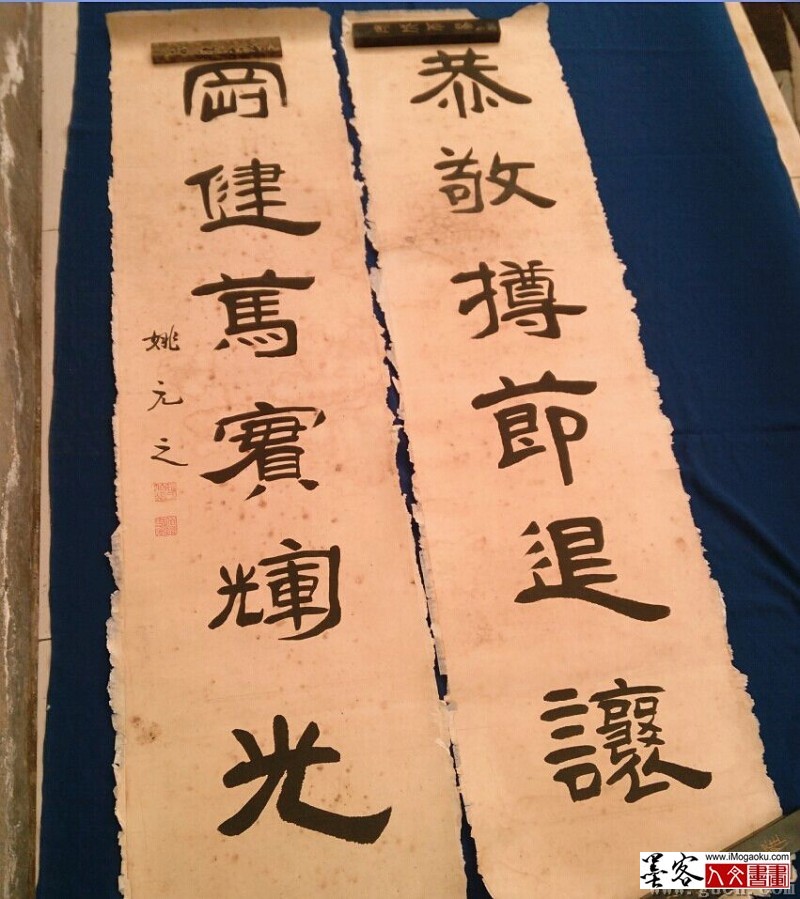 恭敬撙節退讓
剛健篤實輝光
姚元之
墨客
www.iMogaoku.com
人文書畫